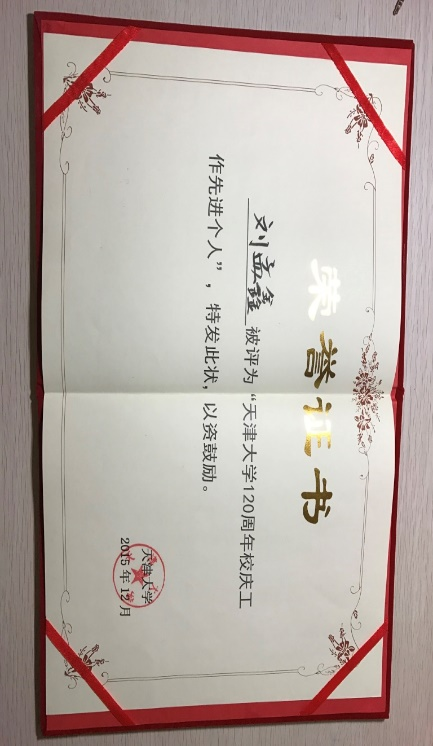 荣誉证书
刘孟鑫 被评为“天津大学120周年校庆工
作先进个人”，特发此状，以资鼓励。
天津大学
2015年12月